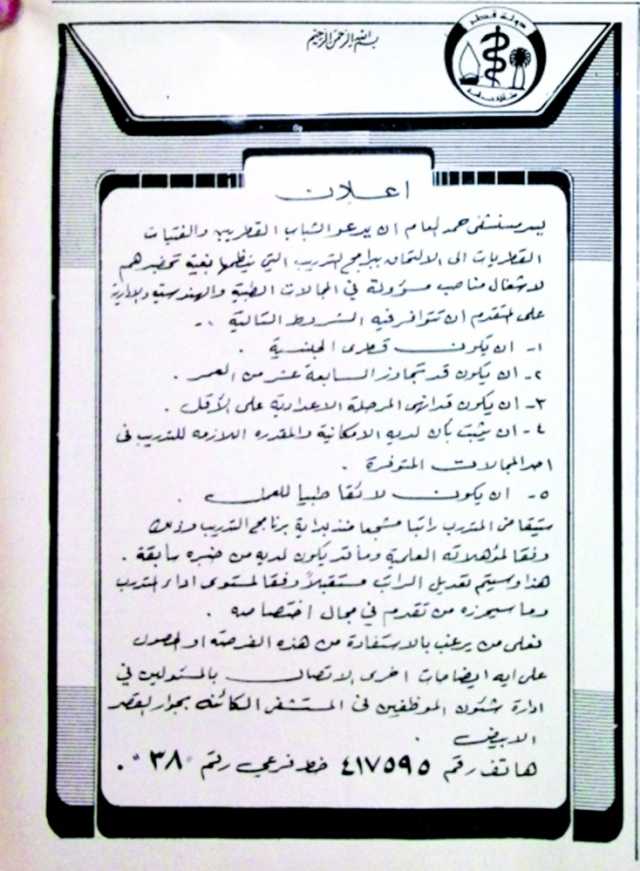 دولة قطر
بسم الله الرحمن الرحيم
اعلان
يسر مستشفى حمد العام ان يدعو الشباب القطريين والفتيات
القطريات الى الالتحاق ببرامج التدريب التي ينظمها بغية تحضيرهم
لاشغال مناصب مسؤولة في المجالات الطبية والهندسية والادارية
على المتقدم ان تتوافر فيه الشروط التالية :-
١- ان يكون قطرى الجنسية .
٢- ان يكون قد تجاوز السابعة عشر من العمر .
٣- ان يكون قد انهى المرحلة الاعدادية على الأقل .
٤- ان يثبت بأن لديه الامكانية والمقدره اللازمه للتدريب في
احد المجالات المتوفرة .
٥- ان يكون لائقا طبيا للعمل .
سيتقاضى المتدرب راتبا مشجعا منذ بداية برنامج التدريب وذلك
وفقا لمؤهلاته العلمية وما قد يكون لديه من خبره سابقة .
هذا وسيتم تعديل الراتب مستقبلاً وفقا لمستوى اداء المتدرب
وما سيحرزه من تقدم في مجال اختصاصه .
فعلى من يرغب بالاستفادة من هذه الفرصه او الحصول
على ايه ايضاحات اخرى الاتصال بالمسئولين في
ادارة شئون الموظفين في المستشفى الكائنه بجوار القصر
الابيض .
هاتف رقم ٤١٧٥٩٥ خط فرعي رقم "٣٨" .